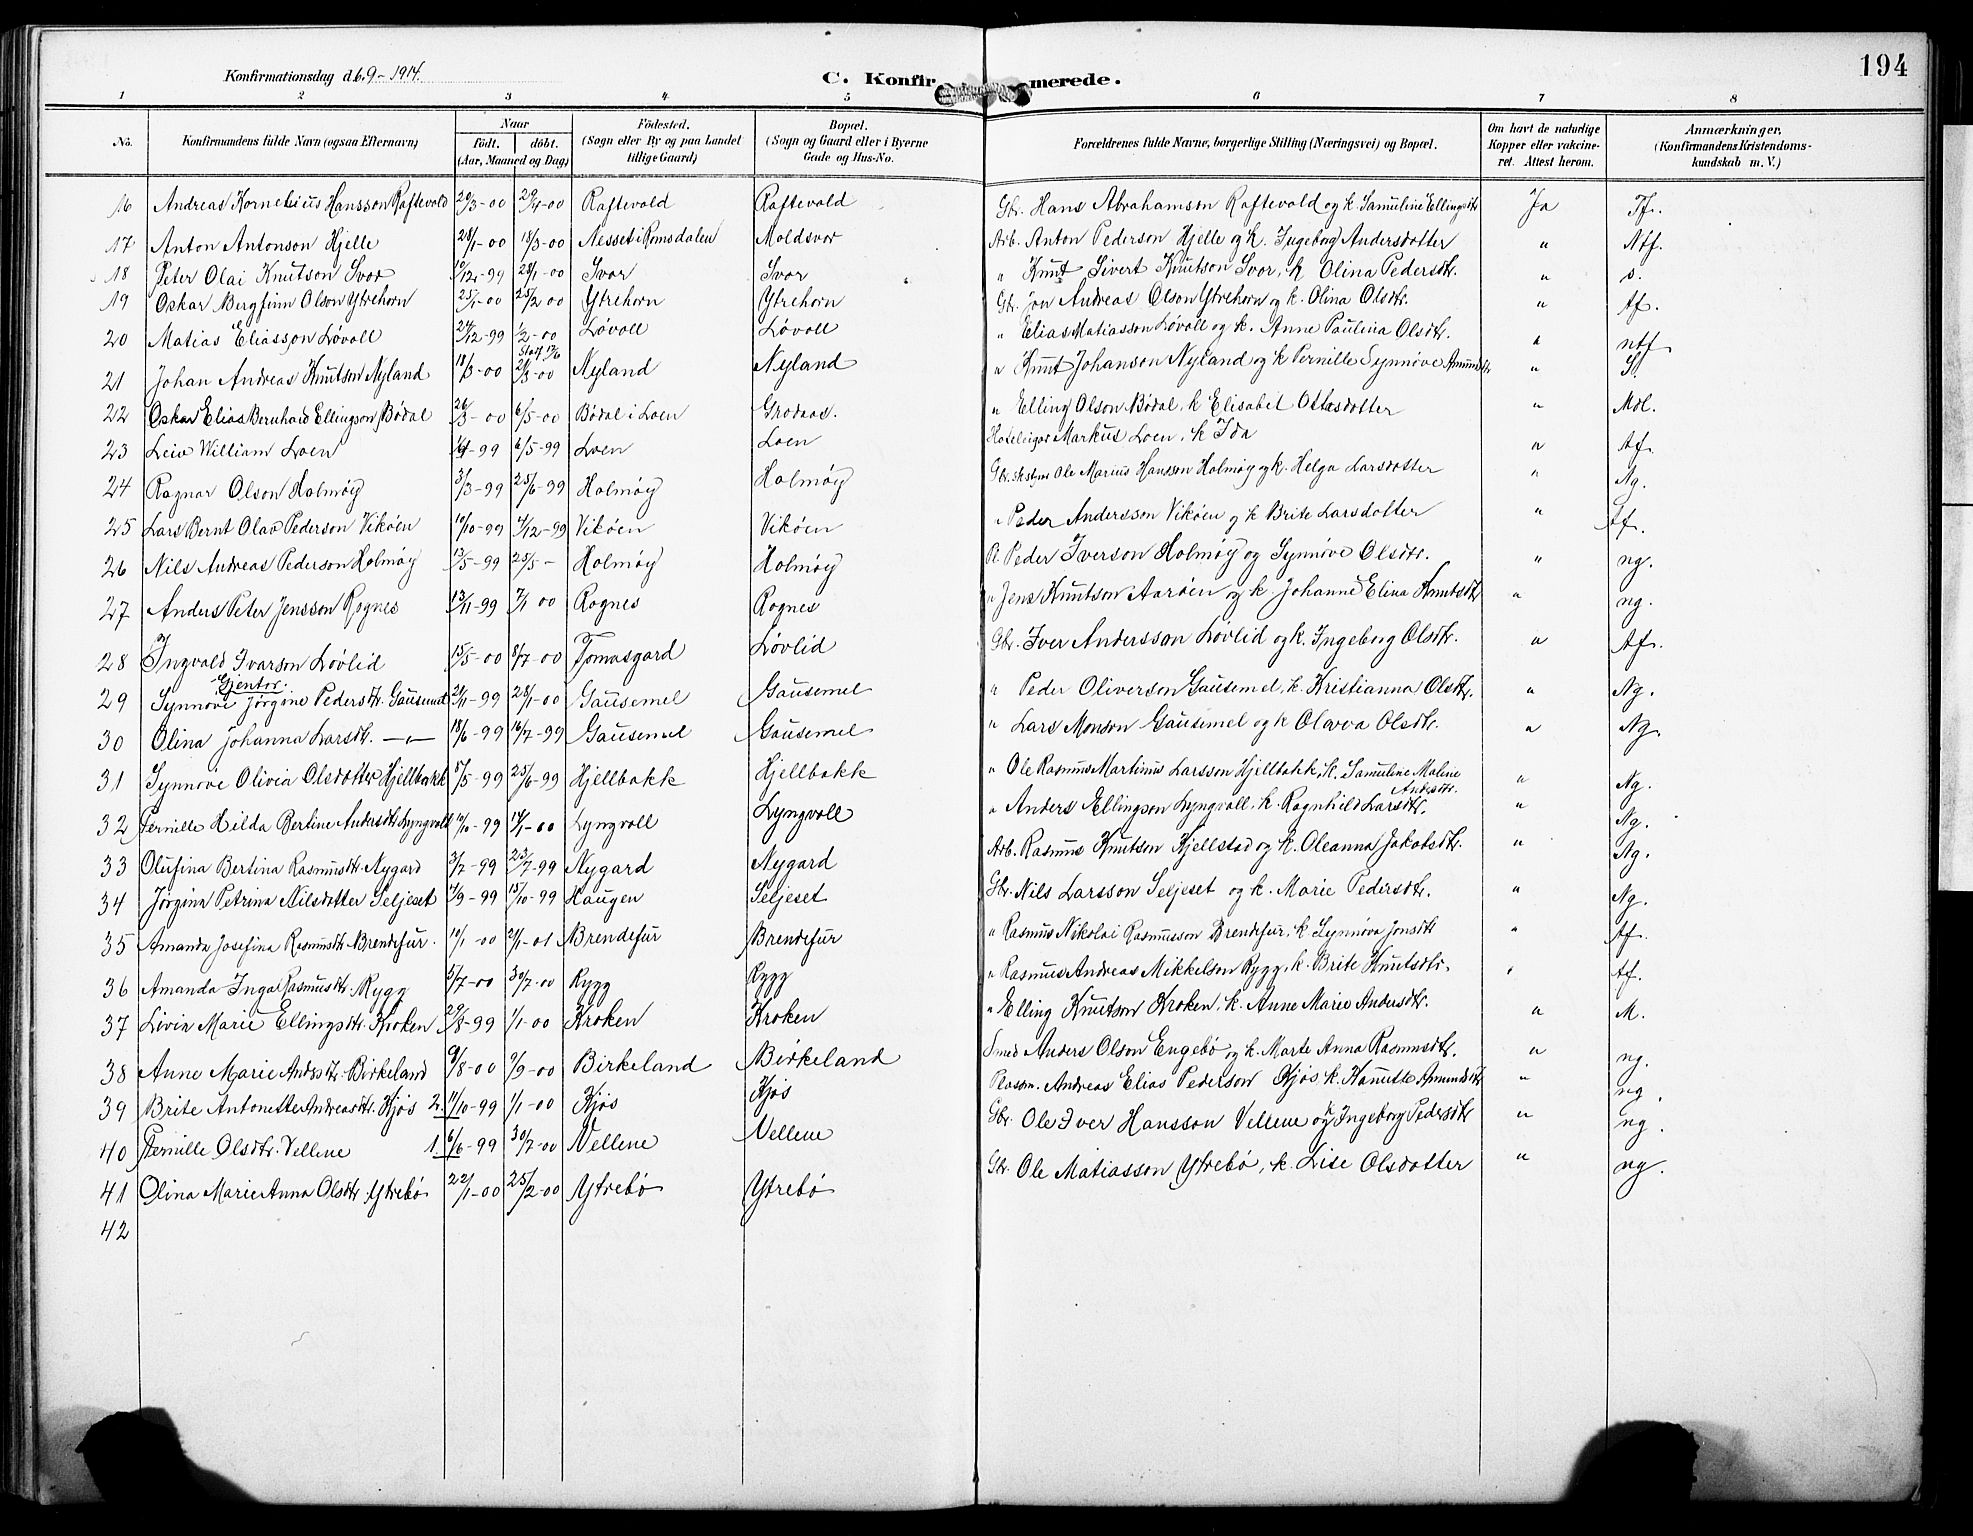 194
Konfirmationsdag d 6.9-1914.
C. Konfirmerede.
1 2 3 4 5 6 7 8
No. Konfirmandens fulde Navn (ogsaa Efternavn) Naar født. døbt. (Aar, Maaned og Dag) Fødested. (Sogn eller By og paa Landet tillige Gaard) Bopæl. (Sogn og Gaard eller i Byerne Gade og Hus-No. Forældrenes fulde Navne, borgerlige Stilling (Næringsvei) og Bopæl. Om havt de naturlige Kopper eller vakcineret. Attest herom. Anmærkninger. (Konfirmandens Kristendomskundskab m. V.)
16 Andreas Kornelius Hansson Raftevold 20/3-00 29/4-00 Raftevold Raftevold Gbr. Hans Abrahamson Raftevold og k. Samuline Ellingsdtr Ja Tf.
17 Anton Antonson Hjelle 28/1-00 18/3-00 Nesset i Romsdalen Moldsvor Arb. Anton Pederson Hjelle og k. Ingeborg Andersdotter " Ntf.
18 Peter Olai Knutson Svor 10/12-99 28/1-00 Svor Svor " Knut Sivert Knutson Svor, k. Olina Pedersdtr. "
19 Oskar Bergfinn Olson Ytrehorn 25/1-00 25/2 00 Ytrehorn Ytrehorn Gbr. Jon Andreas Olson Ytrehorn og k. Olina Olsdtr. "
20 Matias Eliasson Løvoll 24/12-99 1/2-00 Løvoll Løvoll " Elias Matiasson Løvoll og k. Anne Paulina Olsdtr. " ntf
21 Johan Andreas Knutson Nyland 18/3-00 Nyland Nyland " Knut Johanson Nyland og k Pernille Synnøve Amundsdtr "
22 Oskar Elias Bernhard Ellingson Bødal 26/3-00 6/5-00 Bødal i Loen Grodaas. " Elling Olson Bødal, k Elisabet Ottesdotter " Mdl.
23 Leiv William Loen 6/5-99 Loen Loen Hoteleigar Markus Loen, k Ida "
24 Ragnar Olson Holmøy 3/3-99 25/6-99 Holmøy Holmøy Ole Marius Hansson Holmøy og k. Helga Larsdotter " Ng.
25 Lars Bernt Olav Pederson Vikøen 10/10-99 Vikøen Vikøen " Peder Andersson Vikøen og k Brite Larsdotter "
26 Nils Andreas Pederson Holmøy 13/5-99 25/5 - Holmøy Holmøy Pl. Peder Iverson Holmøy og Synnøve Olsdtr. " ng.
27 Anders Peter Jensson Rognes 13/11-99 7/1 00 Rognes Rognes " Jens Knutson Aarøen og k. Johanne Elina Knutsdtr " ng.
28 Ingvald Ivarson Løvlid 15/5-00 8/7-00 Tomasgard Løvlid Gbr. Iver Andersson Løvlid og k. Ingeborg Olsdtr. "
Gjentor.
29 Synnøve Jørgine Pedersdtr. Gausemel 28/1-00 Gausemel Gausemel " Peder Oliverson Gausemel, k. Kristianna Olsdtr. " Ng.
30 Olina Johanna Larsdtr. —"— 18/6-99 16/7-99 Gausemel Gausemel " Lars Monson Gausemel og k Olava Olsdtr. " Ng.
31 Synnøve Olivia Olsdotter Hjellbakk 25/6-99 Hjellbakk Hjellbakk " Ole Rasmus Martinus Larsson Hjellbakk, k. Samuline Maline Andersdtr. " Ng.
32 Pernille Hilda Bertine Andersdtr Lyngvoll 10/10-99 14/1-00 Lyngvoll Lyngvoll " Anders Ellingson Lyngvoll, k. Ragnhild Larsdtr. " Ng.
33 Olufina Bertina Rasmusdtr. Nygard 3/7-99 23/7-99 Nygard Nygard Arb. Rasmus Knutson Hjellstad og k. Oleanna Jakobsdtr. " Ng.
34 Jørgina Petrina Nilsdotter Seljeset 4/9-99 15/10-99 Haugen Seljeset Gbr. Nils Larsson Seljeset og k. Marie Pedersdtr. " Ng.
35 Amanda Josefina Rasmusdtr. Brendefur. 10/1-00 21/1-01 Brendefur Brendefur " Rasmus Nikolai Rasmusson Brendefur, k Synnøva Jonsdtr "
36 Amanda Inga Rasmusdtr. Rygg 5/7-00 30/7-00 Rygg Rygg " Rasmus Andreas Mikkelson Rygg, k. Brite Knutsdtr. "
37 Livia Marie Ellingsdtr. Kroken 29/8-99 1/1-00 Kroken Kroken " Elling Knutson Kroken, k. Anne Marie Andersdtr. " M.
38 Anne Marie Andersdtr. Birkeland 9/9-00 Birkeland Birkeland Smed Anders Olson Engebø og k. Marte Anna Rasmusdtr. " ng.
39 Brite Antonette Andreasdtr. Kjøs 2. 11/10-99 1/1-00 Kjøs Kjøs Plassm. Andreas Elias Pederson Kjøs k. Hanutte Amundsdtr " ng.
40 Pernille Olsdtr. Vellene 1. 6/6-99 30/7-00 Vellene Vellene Gbr. Ole Iver Hansson Vellene og k Ingeborg Pedersdtr " ng.
41 Olina Marie Anna Olsdtr Ytrebø 22/1-00 25/2-00 Ytrebø Ytrebø Gbr. Ole Matiasson Ytrebø, k. Lise Olsdotter " ng.
42